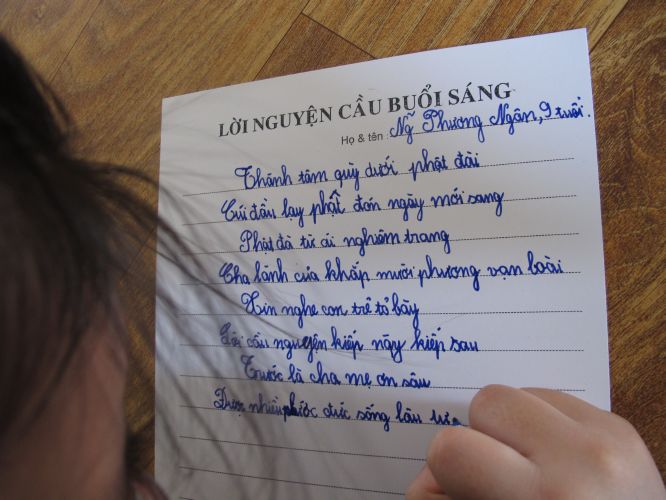 LỜI NGUYỆN CẦU BUỔI SÁNG
Họ & tên Ng̃ Phương Ngân, 9 tuổi.
Thánh tâm quỳ dưới phật đài
Cúi đầu lạy phật đón ngày mới sang
Phật đà từ ái nghiêm trang
Cha lành của khắp mười phương vạn loài
Xin nghe con trẻ tỏ bày
Lời cầu nguyện kiếp này kiếp sau
Trước là cha mẹ ơn sâu
Được nhiều phước đức sống lâu